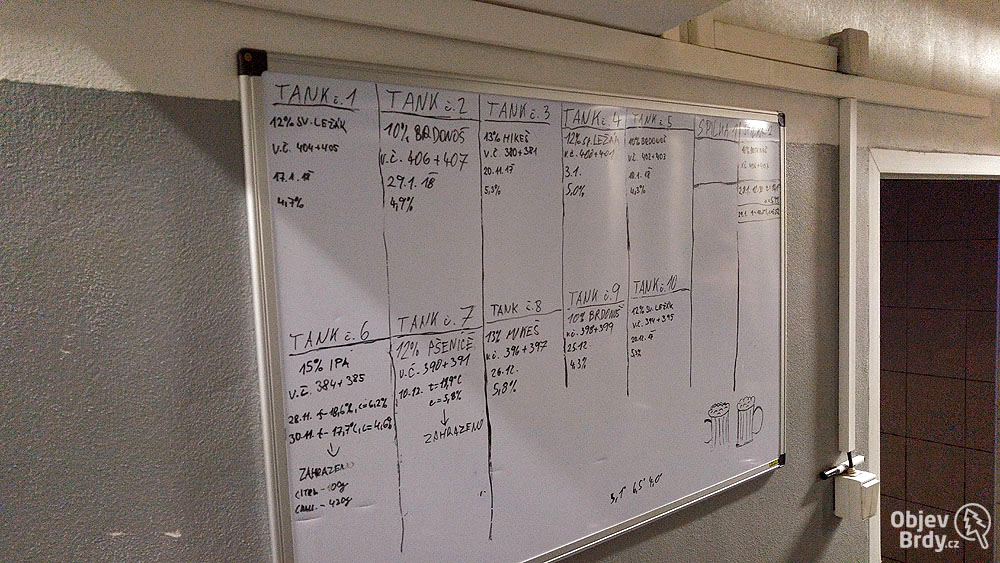 TANK č.1
12% SV. LEŽÁK
V.Č. 404+405
17.1. 18
4,7%
TANK č.2
10% BRDONOŠ
V.Č. 406+407
29.1. 18
4,9%
TANK č.3
13% MIKEŠ
V.Č. 380+381
20.11. 17
5,3%
TANK č.4
12% SV. LEŽÁK
V.Č. 400+401
3.1.
5,0%
TANK č.5
10% BRDONOŠ
V.Č. 402+403
10.1. 18
4,3%
SPILKA
TANK č.6
15% IPA
V.Č. 384+385
28.11. t-18,6°C, c=6,2%
30.11. t-17,7°C, c=4,6%
↓
ZAHRAZENO
CITRA - 100g
- 420g
TANK č.7
12% PŠENICE
V.Č. 390+391
10.12. t=18,9°C
c=5,8%
↓
ZAHRAZENO
TANK č.8
13% MIKEŠ
V.Č. 396+397
26.12.
5,8%
TANK č.9
10% BRDONOŠ
V.Č. 398+399
25.12.
4,3%
TANK č.10
12% SV. LEŽÁK
V.Č. 394+395
20.12. 17
Objev
Brdy.cz